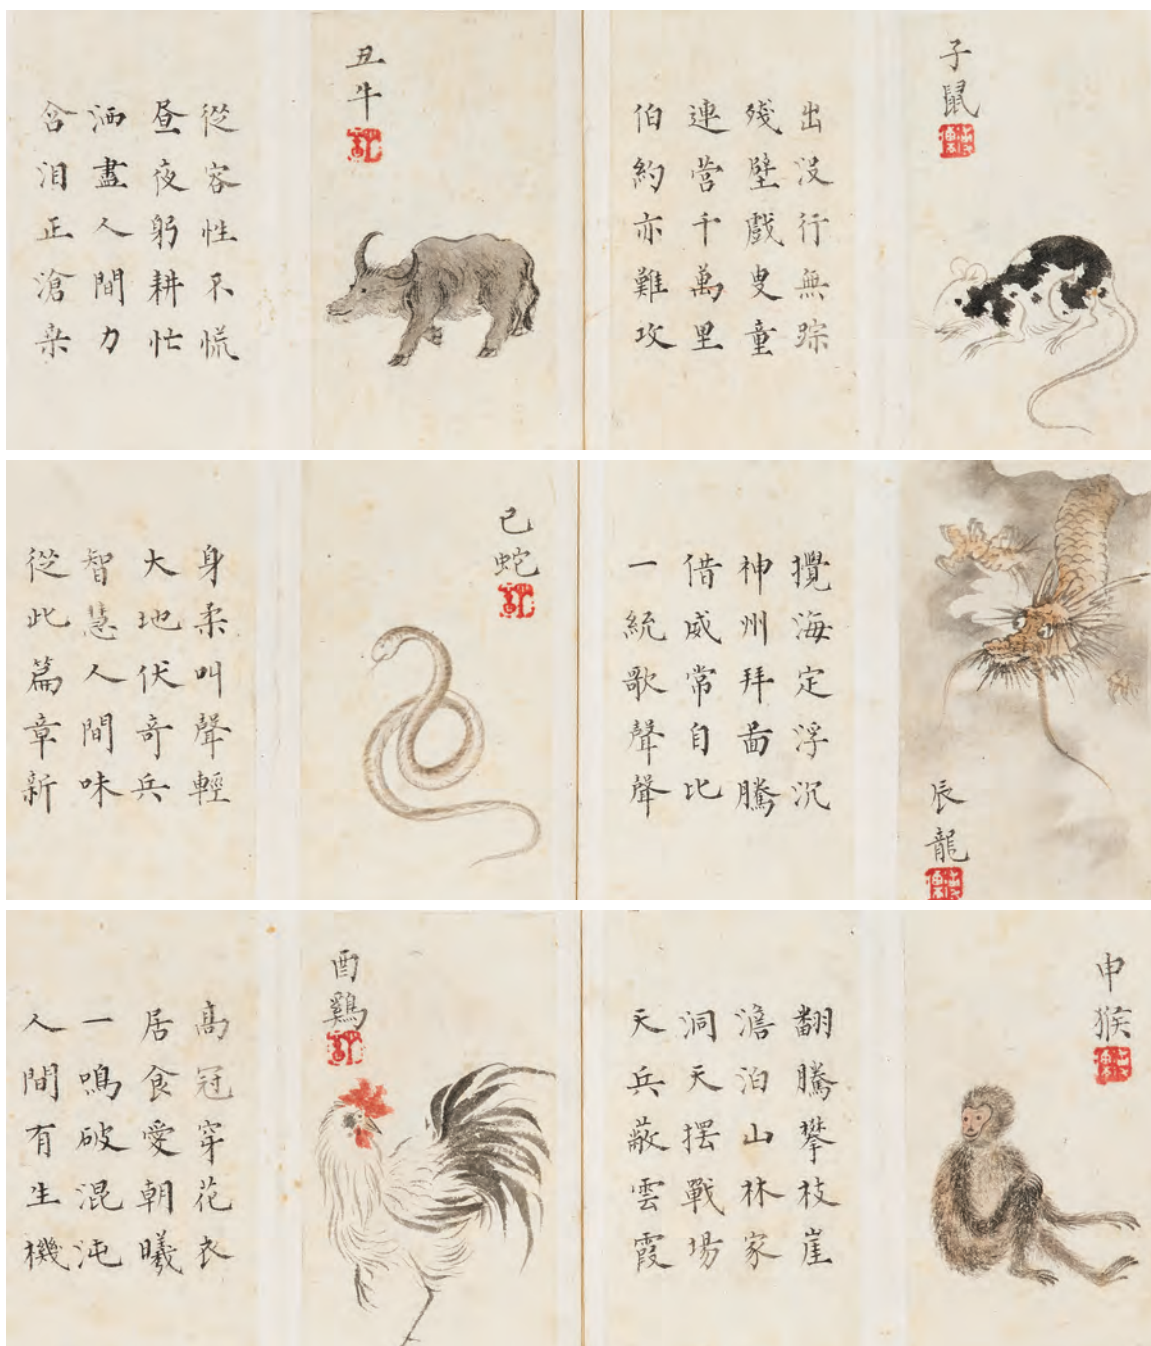 子鼠
出没行無踪
殘壁戲叟童
連营千萬里
伯約亦難攻
丑牛
從容性不慌
昼夜躬耕忙
洒盡人間力
含泪正滄桒
辰龍
攪海定浮沉
神州拜啚騰
借威常自比
一統歌聲聲
巳蛇
身柔叫聲輕
大地伏奇兵
智慧人間味
從此篇章新
申猴
翻騰攀枝崖
澹泊山林家
洞天摆戰場
天兵蔽雲霞
酉鷄
高冠穿花衣
居食愛朝曦
一鳴破混沌
人間有生機